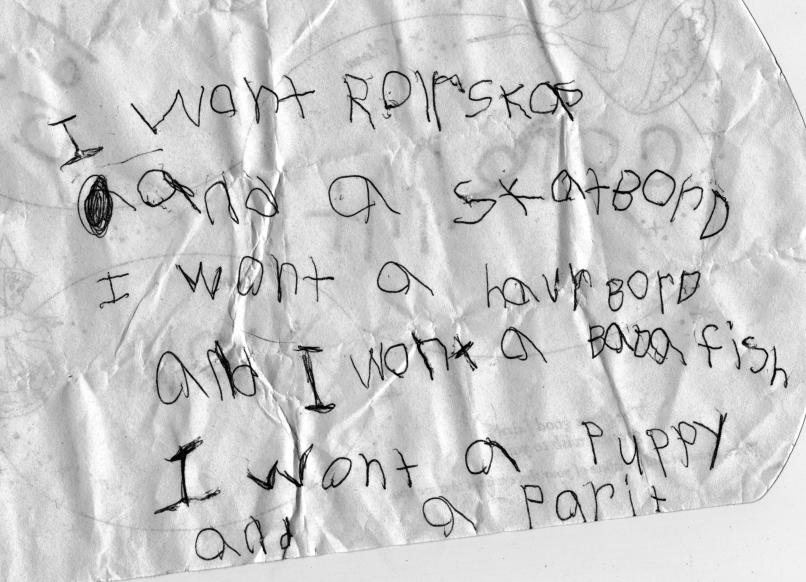 I want Rolrskos
and a skatBord
I want a havrBord
and I wont a BaBa fish
I want a Puppy
and a Parit